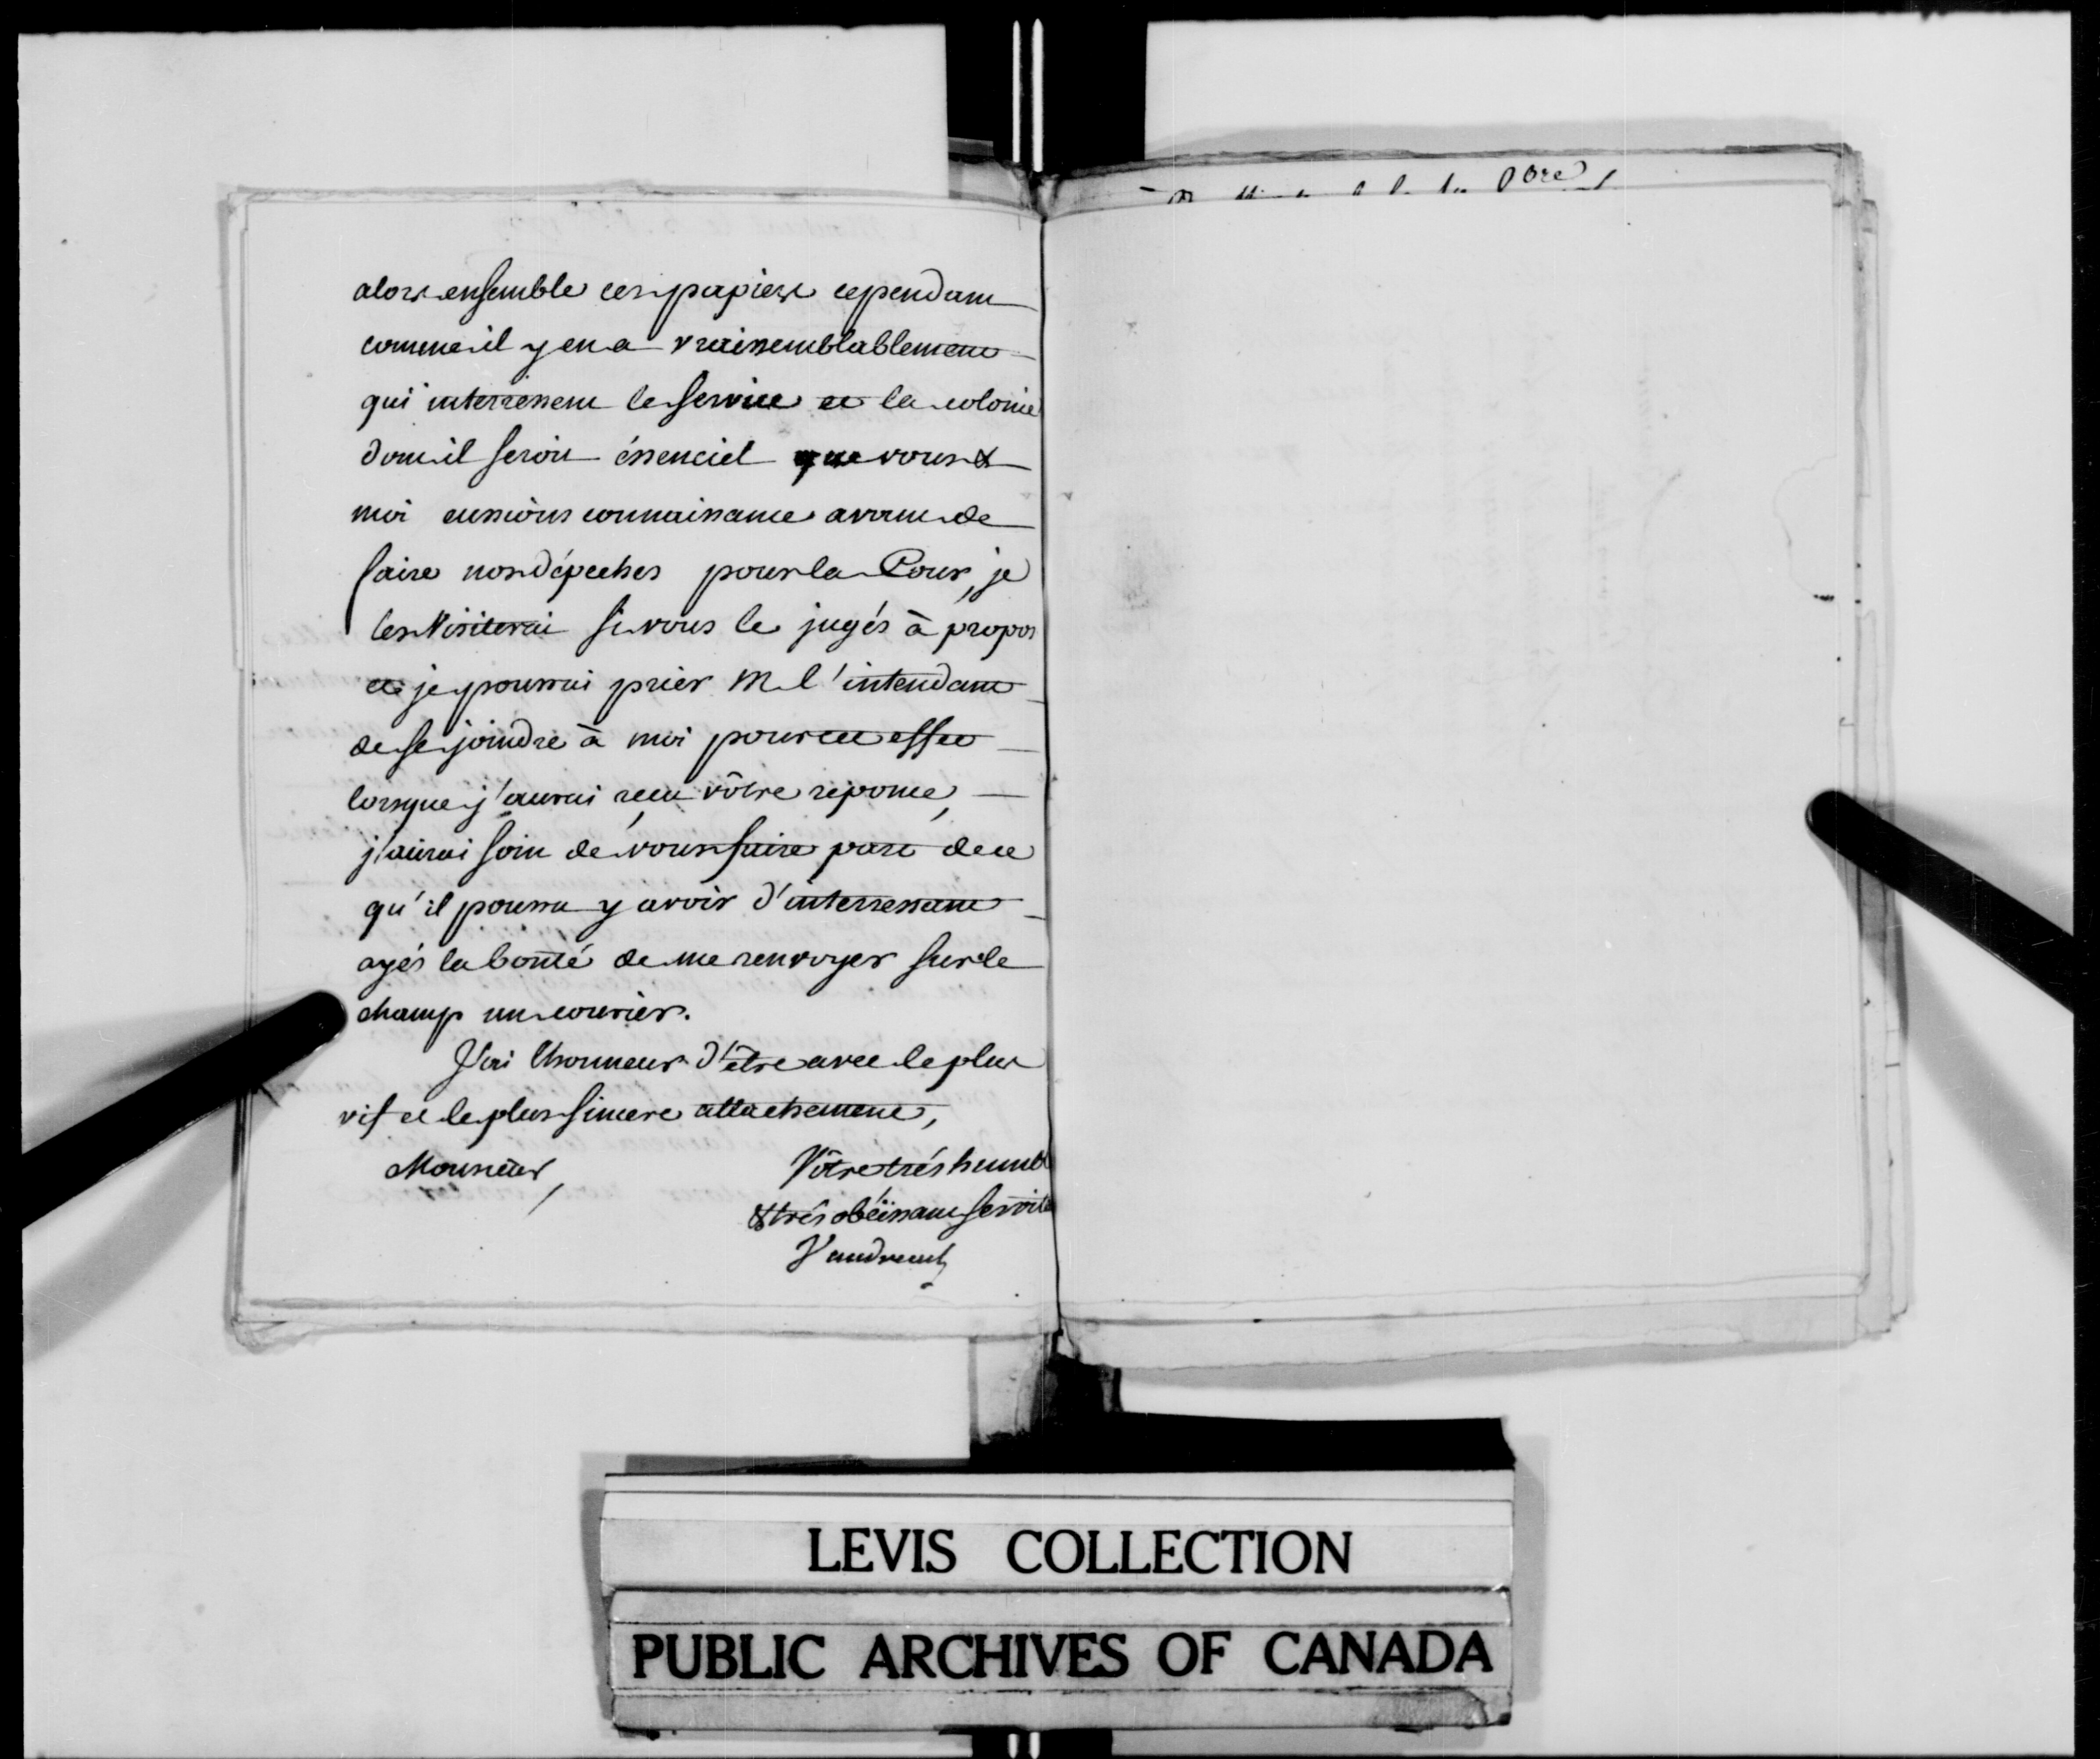 alors ensemble ces papiers cependant
comme il y en a vraissemblablement
qui interressent le service et la colonie
dont il seroit éssenciel que vous &
moi eussions connaissance avant de
faire nos dépeches pour la Cour, je
les visiterai si vous le jugés à propos
et je pourrai prier M. l'intendant
de se joindre à moi pour cet effet
lorsque j'aurai reçu vôtre réponse,
j'aurai soin de vous faire part de ce
qu'il pourra y avoir d'interressant
ayés la bonté de me renvoyer sur le
champ un courier.
J'ai l'honneur d'être avec le plus
vif et le plus sincere attachement,
Monsieur, Vôtre trés humble
& trés obéissant servite
Vaudreuil
LEVIS COLLECTION
PUBLIC ARCHIVES OF CANADA